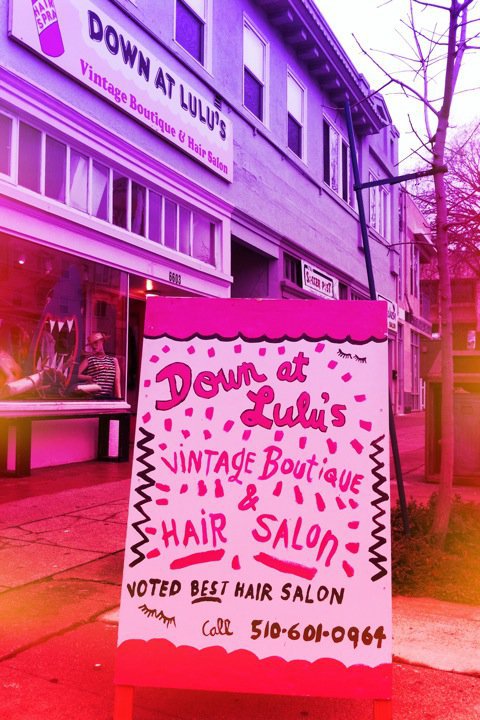 HAIR
SPRA
DOWN AT LULU'S
Vintage Boutique & Hair Salon
6603
Down at
Lulu's
VINTAGE BOUTIQUE
&
HAIR SALON
VOTED BEST HAIR SALON
Call 510-601-0964